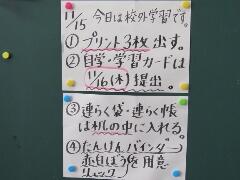 11/15 今日は校外学習です。
① プリント3枚出す。
② 自学・学習カードは
11/16(木)提出。
③ 連らく袋・連らく帳
は机の中に入れる。
④ たんけんバインダー
赤白ぼうを用意
リュック